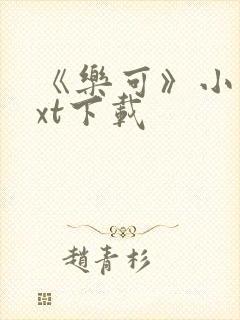 《樂可》小
xt下載
趙青杉